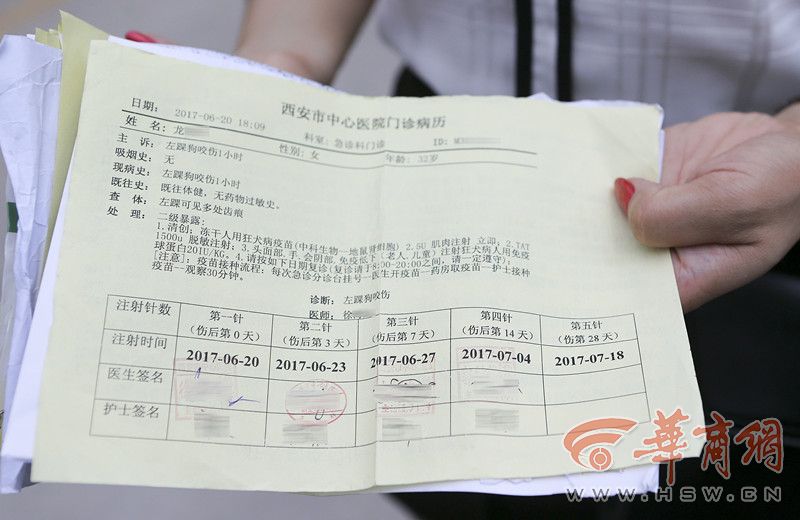 西安市中心医院门诊病历
日期: 2017-06-20 18:09
姓 名: 龙
科室: 急诊科门诊
ID: M3
性别: 女
年龄: 32岁
主 诉: 左踝狗咬伤1小时
吸烟史: 无
现病史: 左踝狗咬伤1小时
既往史: 既往体健,无药物过敏史。
查 体: 左踝可见多处齿痕
处 理: 二级暴露:
1.清创; 冻干人用狂犬病疫苗(中科生物—地鼠肾细胞) 2.5U 肌肉注射 立即; 2.TAT
1500u 脱敏注射; 3.头面部,手,会阴部,免疫低下[老人,儿童]注射狂犬病人用免疫
球蛋白20IU/KG。4.请按如下日期复诊(复诊请于8:00-20:00之间,请一定遵守):
[注意]: 疫苗接种流程: 每次急诊分诊台挂号—医生开疫苗—药房取疫苗—护士接种
疫苗—观察30分钟。
诊断: 左踝狗咬伤
医师: 徐
注射针数 第一针 第二针 第三针 第四针 第五针
(伤后第 0 天) (伤后第 3 天) (伤后第 7 天) (伤后第 14 天) (伤后第 28 天)
注射时间 2017-06-20 2017-06-23 2017-06-27 2017-07-04 2017-07-18
医生签名
护士签名
华商网
WWW.HSW.CN